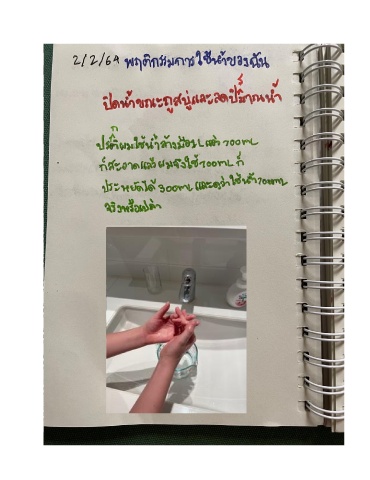 2/2/69 พฤติกรรมการใช้น้ำของฉัน
ปิดน้ำขณะถูสบู่และลดปริมาณน้ำ
ปกติผมใช้น้ำล้างมือ 1L แต่ 700ML
ก็สะอาดแล้วผมจึงใช้ 700ML ก็
ประหยัดได้ 300ML และดูว่าใช้น้ำ 700ML
จริงหรือเปล่า